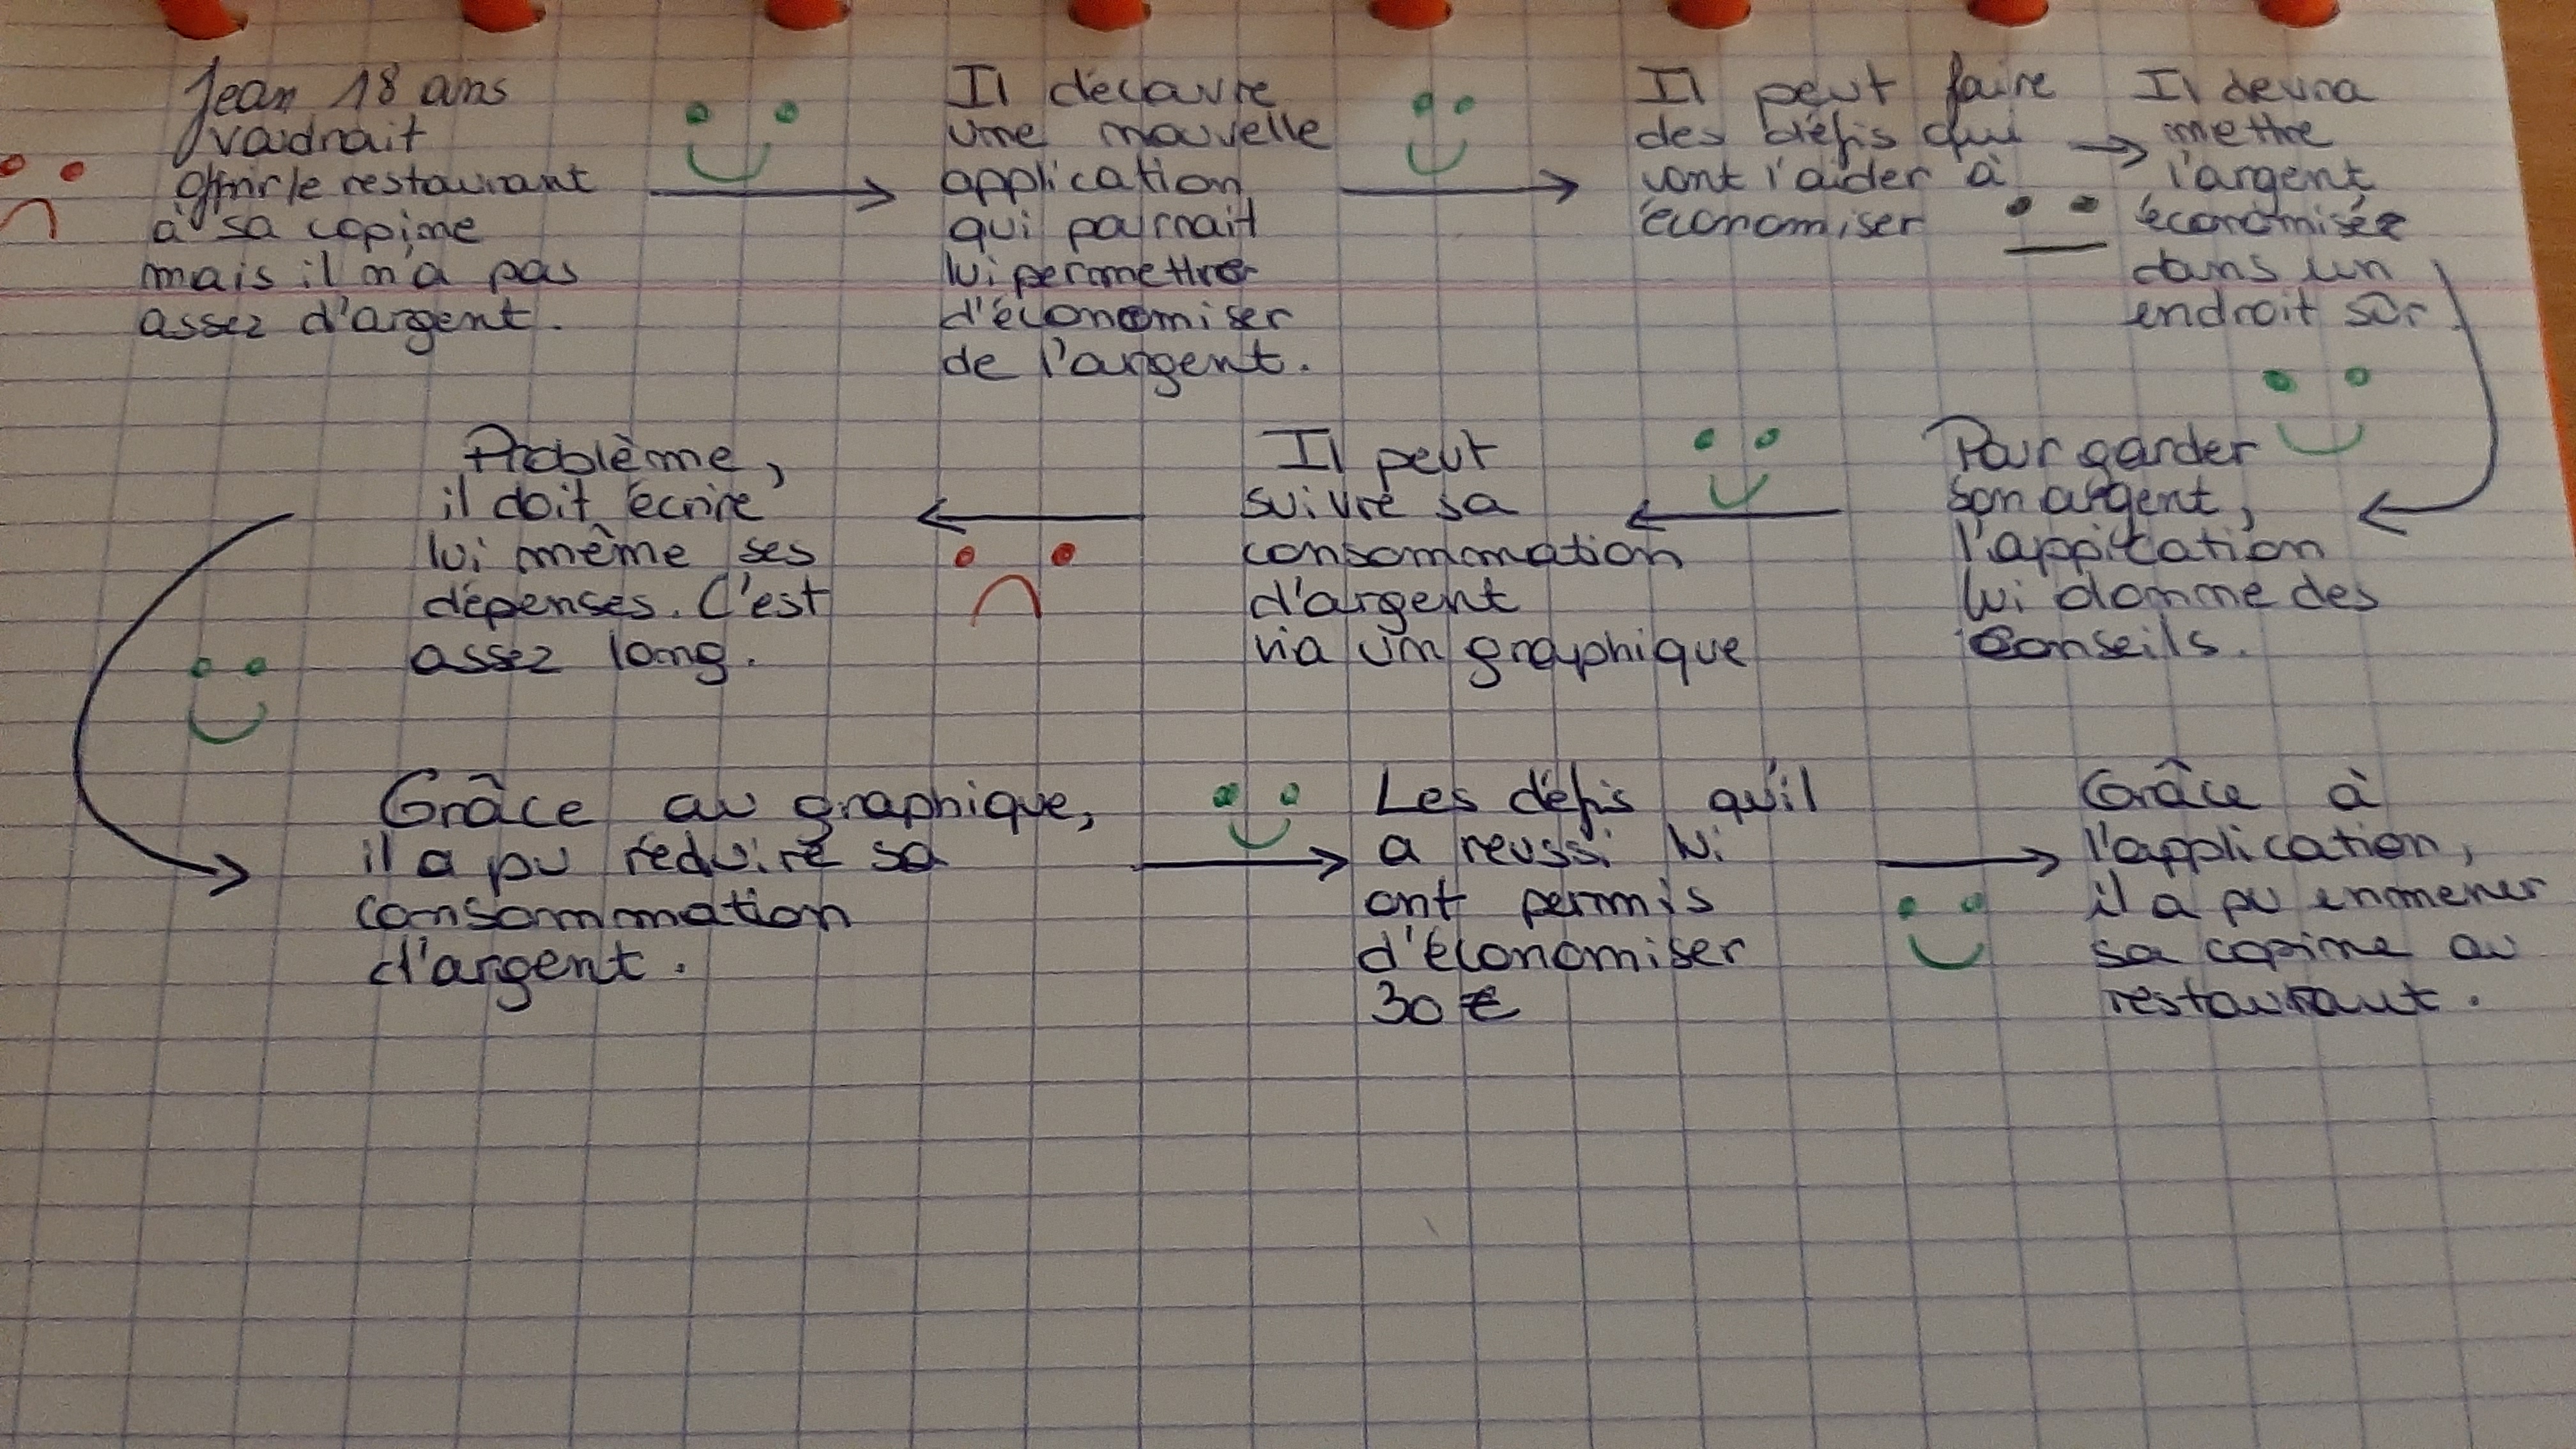 Jean 18 ans
voudrait
offrir le restaurant
à sa copine
mais il n'a pas
assez d'argent.
Il découvre
une nouvelle
application
qui pourrait
lui permettre
d'économiser
de l'argent.
Il peut faire
des défis qui
vont l'aider à
économiser
Il devra
mettre
l'argent
économisée
dans un
endroit sûr
Pour garder
son argent,
l'application
lui donne des
conseils.
Il peut
suivre sa
consommation
d'argent
via un graphique
Problème,
il doit écrire
lui même ses
dépenses. C'est
assez long.
Grâce au graphique,
il a pu réduire sa
consommation
d'argent.
Les défis qu'il
a reussi lui
ont permis
d'économiser
30 €
Grâce à
l'application,
il a pu enmener
sa copine au
restaurant.